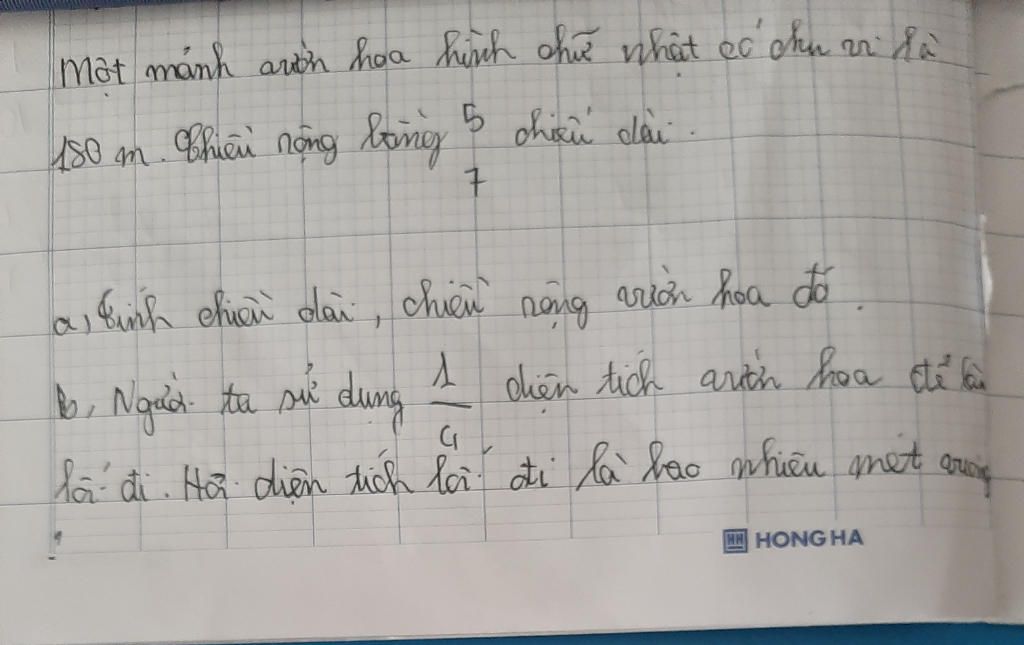 Một mảnh vườn hoa hình chữ nhật có chu vi là
180 m. Chiều rộng bằng 5/7 chiều dài.
a, Tính chiều dài, chiều rộng vườn hoa đó.
b, Người ta sử dụng 1/4 diện tích vườn hoa để là
lối đi. Hỏi diện tích lối đi là bao nhiêu mét vuông
?
HONG HA